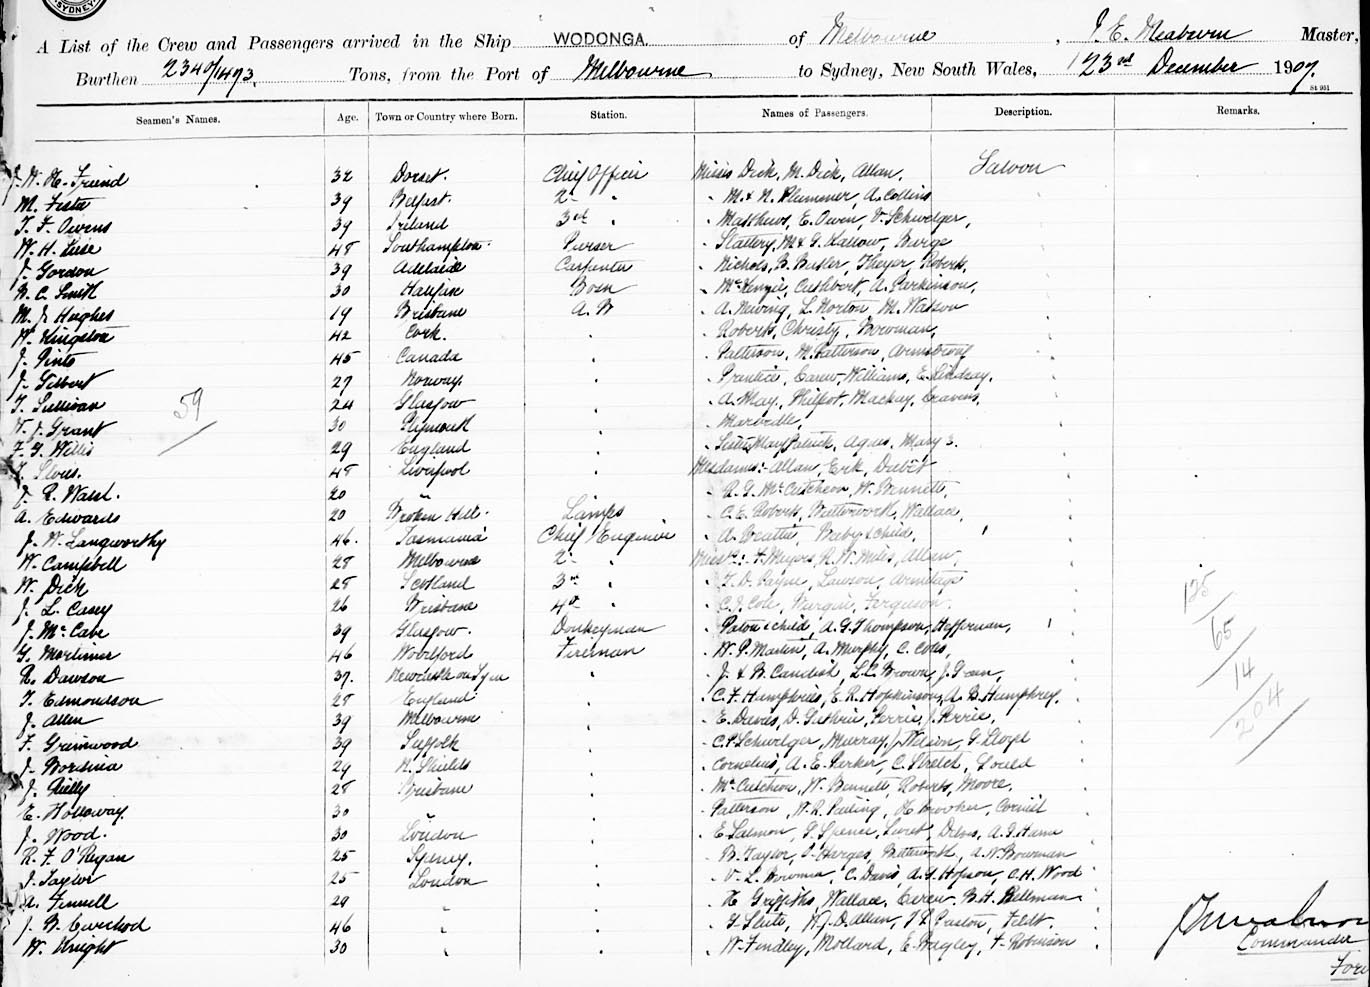 SYDNEY
A List of the Crew and Passengers arrived in the Ship WODONGA. of Melbourne, J. E. Meaburn Master,
Burthen 2340/1473 Tons, from the Port of Melbourne to Sydney, New South Wales, 23rd December 1907.
St 951
Seamen's Names. Age. Town or Country where Born. Station. Names of Passengers. Description. Remarks.
Friend 32 Dorset. Chief Officer Misses Dick, M. Dick, Allan, Saloon
M. 39 Belfast. 2 " M. & N. Plummer, A. Collins
T. F. Owens 39 Ireland 3rd " Matthews, E. Owen, V. Schwelger,
W. H. 48 Southampton. Purser Slattery, M & G. Kallow, Burge
J. Gordon 39 Adelaide Carpenter Nichols, B. Butler, Theyer, Roberts,
B. C. Smith 30 Halifax Bosn McKenzie, Cuthbert A. Parkinson,
M. J. Hughes 19 Brisbane A. B A. Newing, L. Norton, M. Watson
W. Kingston 42 Cork. Roberts, Christy, Bowman,
J. Pinto 45 Canada Patterson, M. Patterson, Armstrong
J. Gilbert 27 Norway. Prentice, Carew, Williams, E. Lindsay,
T. Sullivan 24 Glasgow A. May, Philpot, Mackay, Cravens,
59
Grant 30 Plymouth
F. G. Willis 29 England Patrick, Agnes, Mary 3.
48 Liverpool Mesdames:- Allan, Erk,
J. R. 20 " A. G. McCutcheon, W. Bennett,
A. Edwards 20 Broken Hill. Lamps C. E. Roberts, Butterworth, Wallace,
J. W. Langworthy 46. Tasmania Chief Engineer A. Beattie, Baby & child,
W. Campbell 28 Melbourne 2 " Messrs:- F. Meyers, R. W. Miles, Allan,
W. Dick 28 Scotland 3rd " T. D. Payne, Lawson, Armitage
J. L. Casey 26 Brisbane 4th " C. J. Cole, Ferguson.
125
J. McCabe 39 Glasgow. Donkeyman Paton & child, A. G. Thompson, Heffernan,
65
G. Mortimer 46 Woodford Fireman W. P. Martin, A. Murphy, C. Coles,
14
R. Dawson 37. Newcastle on Tyne J. & B. Candish, L. C. Brown, J. Green,
T. Edmondson 28 England C. F. Humphries, E. R. Hopkinson, A. B. Humphrey,
204
J. Allen 39 Melbourne E. Davies, D. Guthrie, Perrie, J. Perrie,
F. Grimwood 39 Suffolk C. P. Schwelger, Murray, J. Wilson, G. Lloyd
J. 29 N. Shields Cornelius, A. E. Parker, C. Stretch, Gould
J. Reilly 28 Brisbane McCutcheon, W. Bennett, Roberts, Moore,
E. Holloway 30 " Patterson, W. R. Pailing, H. Brooker,
J. Wood. 30 London E. Salmon, G. Spence,
R. F. O'Regan 25 Sydney. B. Taylor, Butterworth, A. W. Bowerman
J. Taylor 25 London V. L. Bowman, C. Davis, A. G. Hopson, C. H. Wood
A. Fennell 29 " H. Griffiths, Wallace, Carew, B. H. Bellman
J. B. 46 " W. J. D. Allan, Feldt,
W. Wright 30 " W. Findley, Mollard, E. Bagley, F. Robinson
Commander